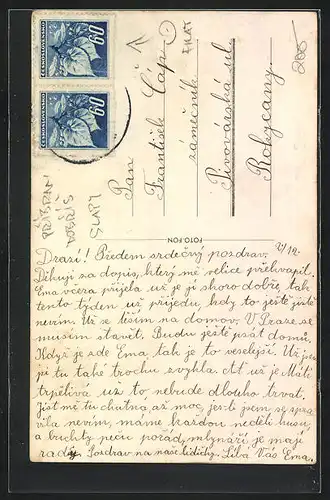 ČESKOSLOVENSKO
60
ČESKOSLOVENSKO
60
ZLAT
PŘÍBRAM
DOBŘÍŠ
SLATI
Pan
František Čáp
zámečník
Pivovárská ul
Rokycany.
FOTO FON
2/12
Drazí! Předem srdečný pozdrav.
Děkuji za dopis, který mě velice překvapil.
Ema včera přijela už je jí skoro dobře, tak
tento týden už přijedu, kdy to ještě jistě
nevím. Už se těším na domov, V Praze, se
musím stavět. Budu ještě psát domů.
Když je zde Ema, tak je to veselejší. Už jsem
si tu také trochu zvykla. Ať už je Máti
trpělivá už to nebude dlouho trvat.
Jíst mě tu chutná až moc, jestli jsem se spra-
vila nevím, máme každou neděli husu,
a buchty peču pořád, mlynáři je mají
rádi. Pozdrav na naše lidičky. Líbá Vás Ema.